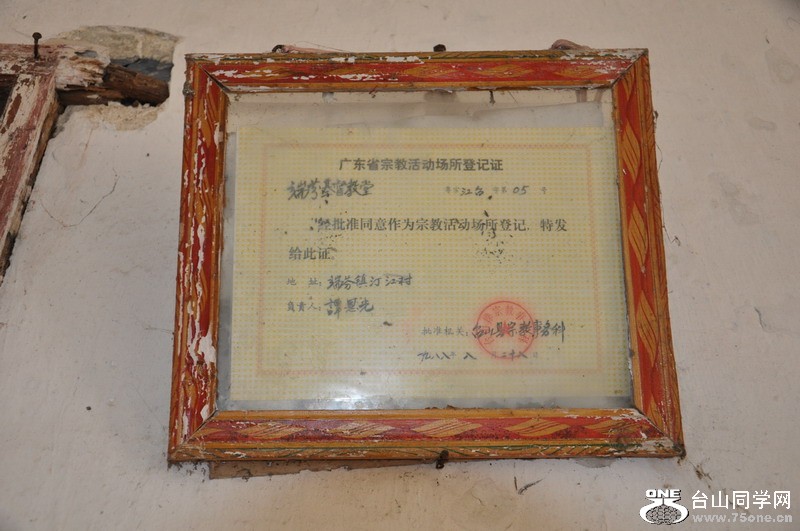 广东省宗教活动场所登记证
端芬基宣教堂
粤宗江台字第05号
经批准同意作为宗教活动场所登记，特发
给此证。
地 址：端芬镇汀江村
负责人：譚恩光
批准机关：台山县宗教事务科
一九八八年八月
ONE
台山同学网
www.75one.cn